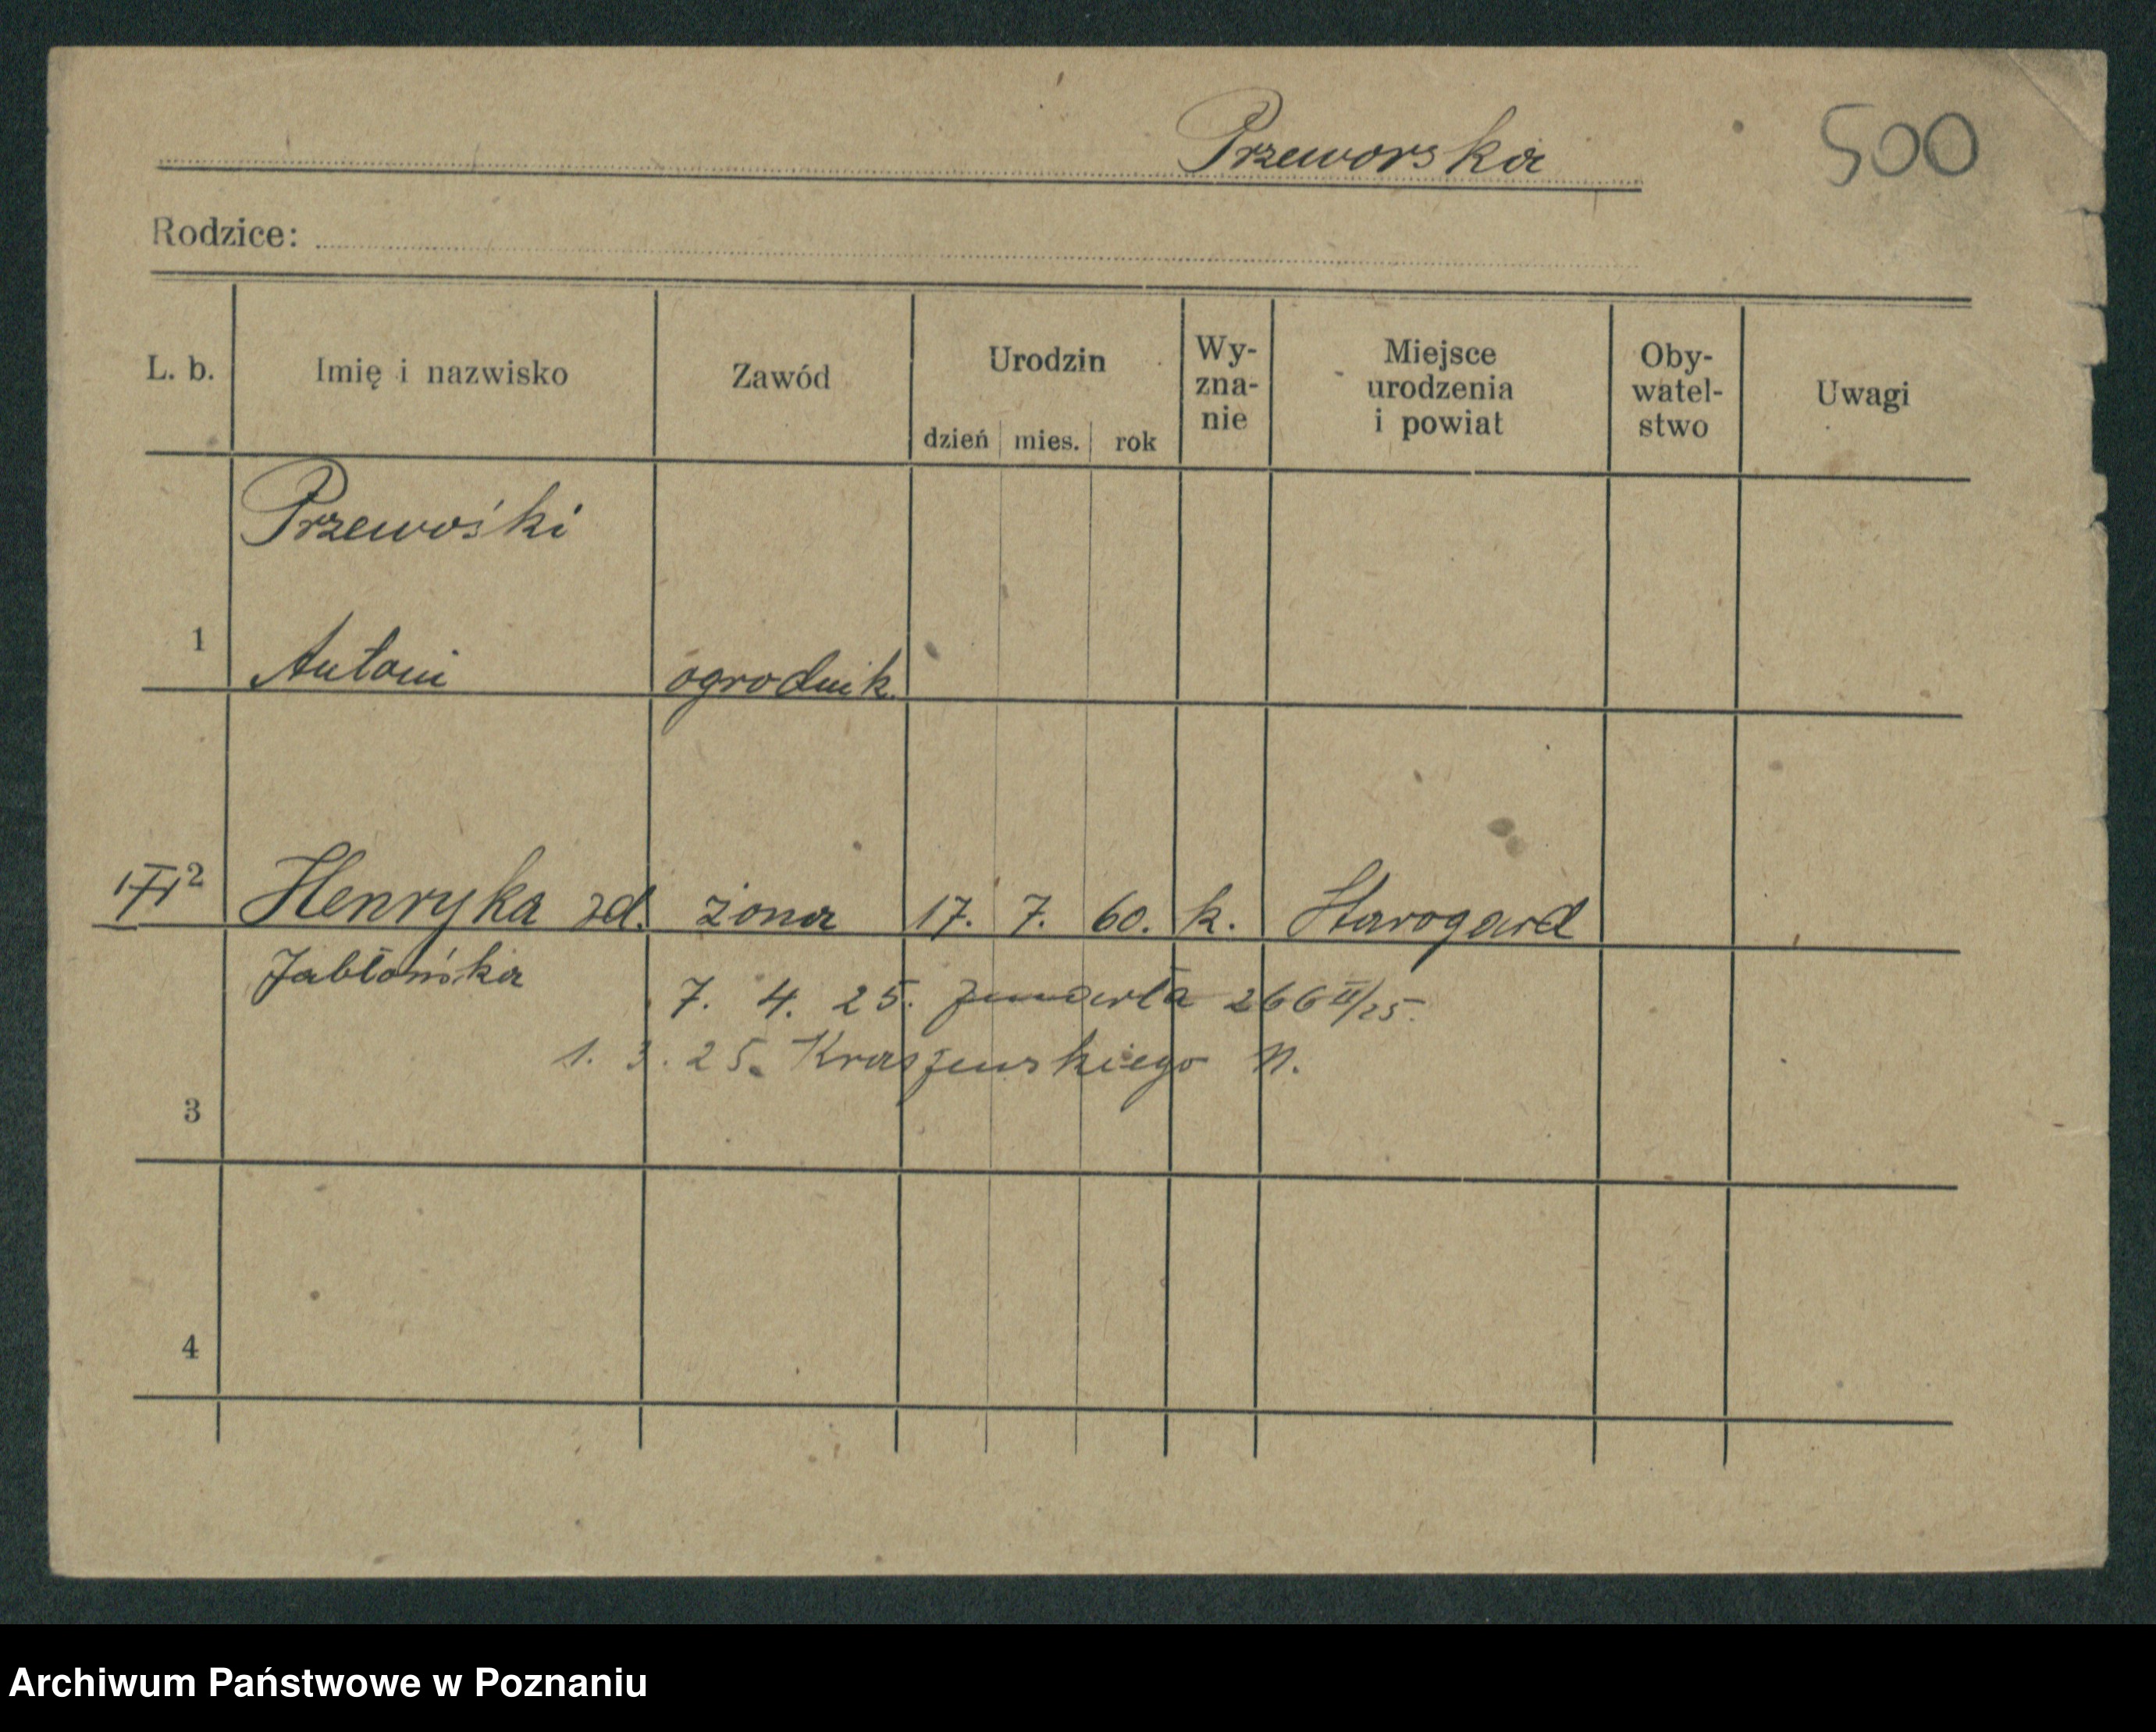 Przeworska
500
Rodzice:
L. b. Imię i nazwisko Zawód Urodzin dzień mies. rok Wy-zna-nie Miejsce urodzenia i powiat Oby-watel-stwo Uwagi
Przewośki
1 Antoni ogrodnik
2 Henryka zd. żona 17. 7. 60. k. Starogard
Jabłońska
7. 4. 25. zmarła 266 II/25.
1. 3. 25. Kraszewskiego
3
4
Archiwum Państwowe w Poznaniu